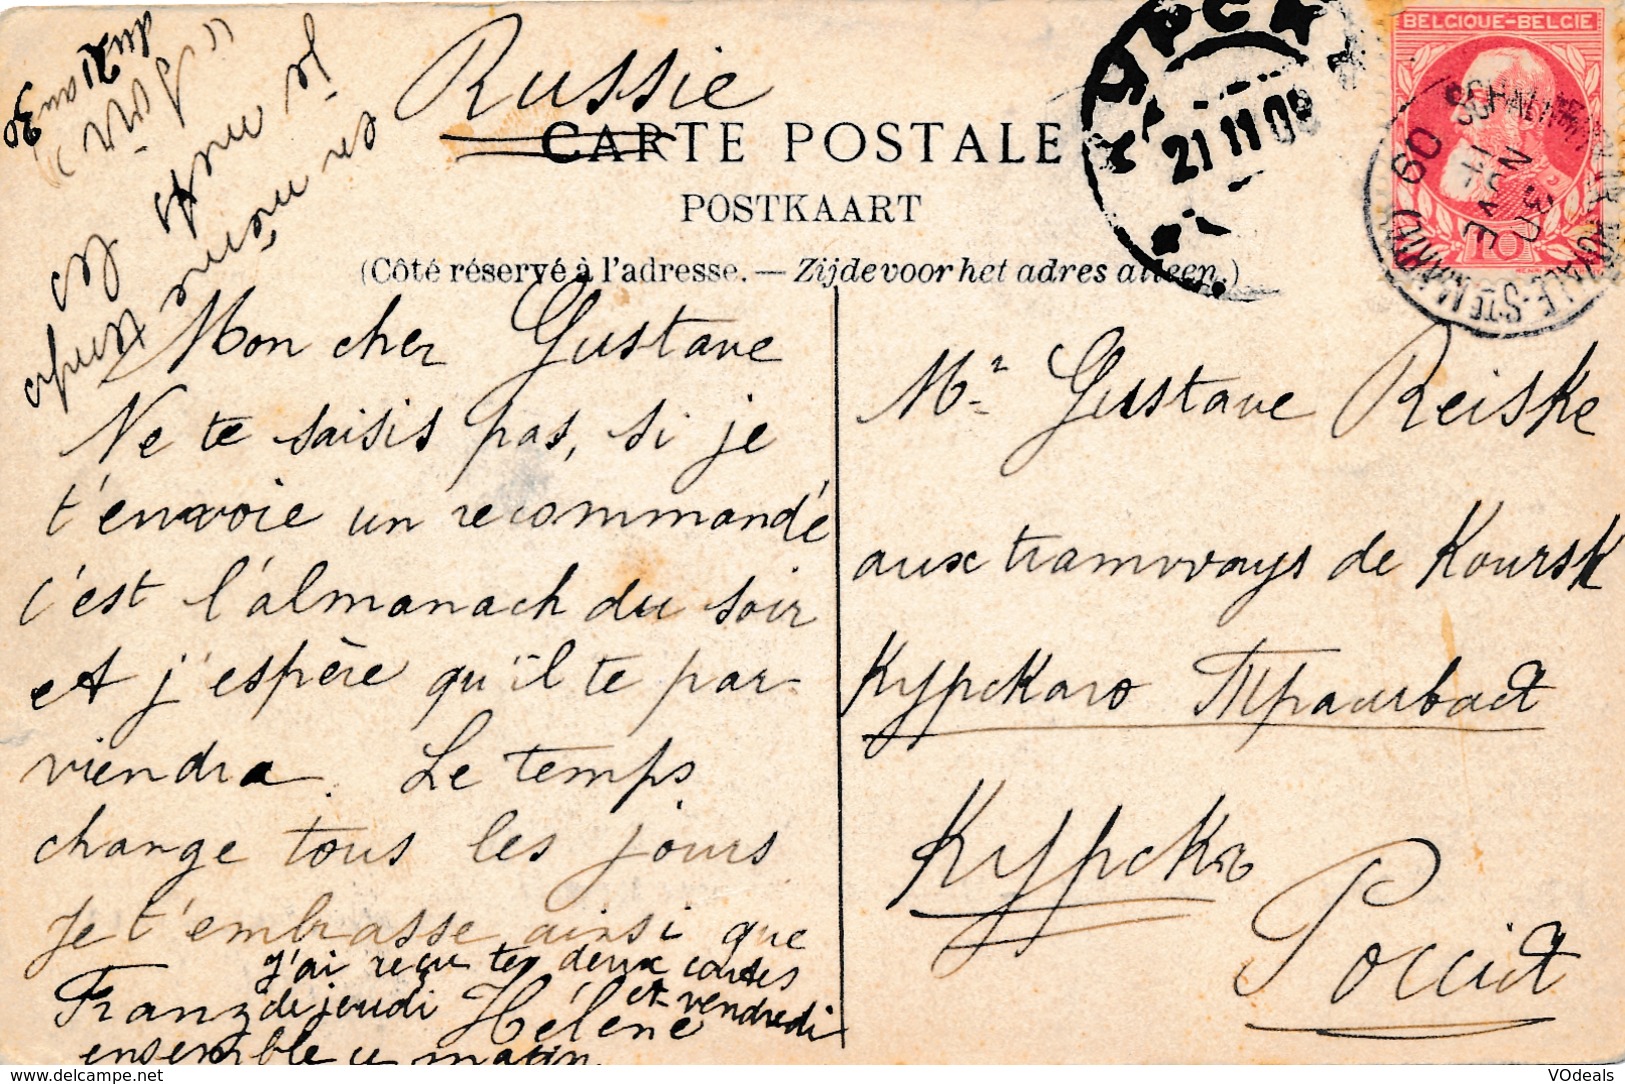 Russie
CARTE POSTALE
POSTKAART
(Côté réservé à l'adresse. — Zijde voor het adres alleen.)
BELGIQUE-BELGIE
10
КУРСК
21 11 09
Mon cher Gustave
Ne te saisis pas, si je
t'envoie un recommandé
c'est l'almanach du soir
et j'espère qu'il te par-
viendra. Le temps
change tous les jours
Je t'embrasse ainsi que
Franz Hélène
j'ai reçu tes deux cartes
de jeudi et vendredi
ensemble ce matin.
Mr Gustave Reiske
aux tramways de Koursk
Курскаго Трамвая
Курскъ
Россия
les
du 21 au 30
en même temps
VOdeals
delcampe.net